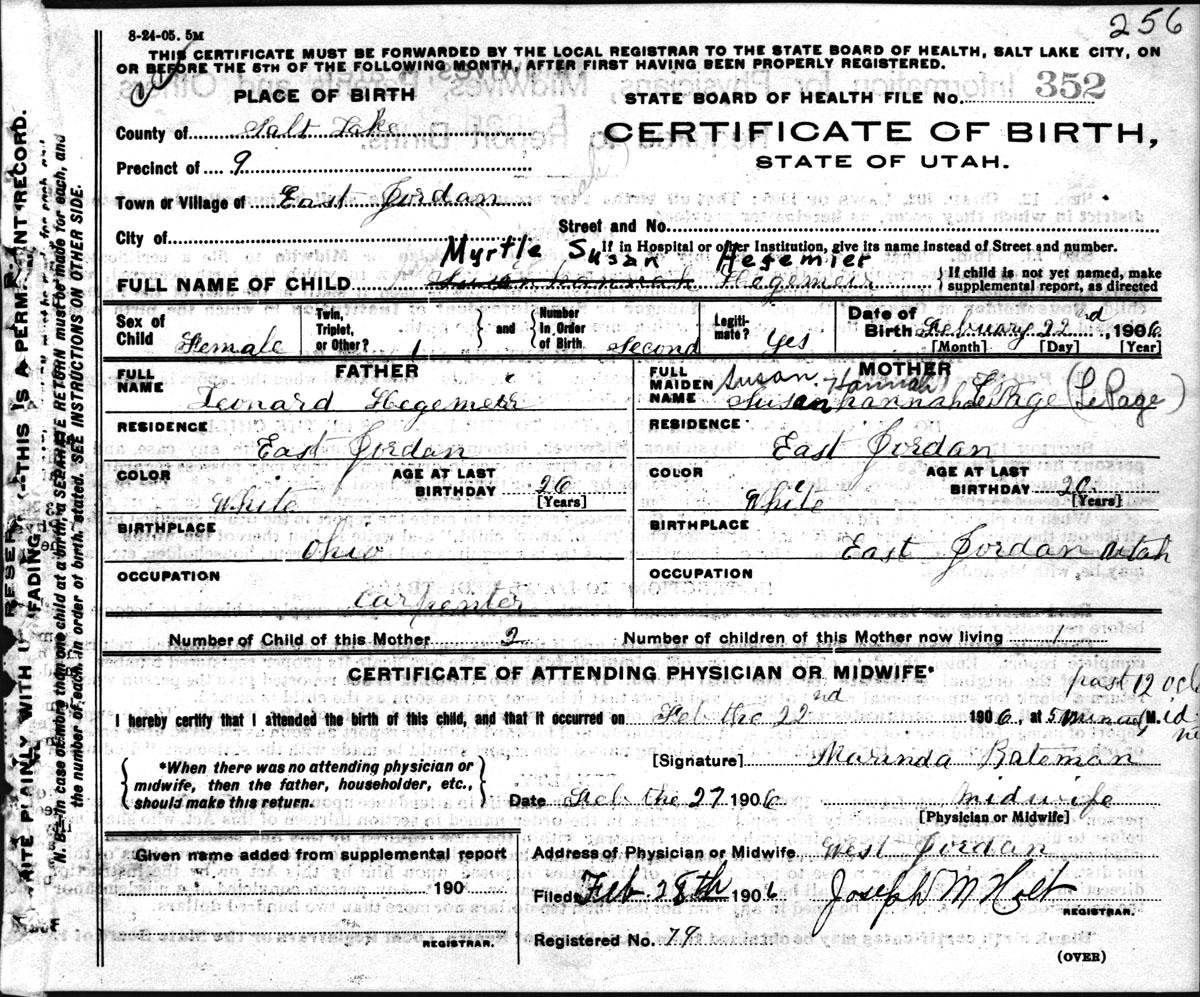 256
8-24-05. 5M
THIS CERTIFICATE MUST BE FORWARDED BY THE LOCAL REGISTRAR TO THE STATE BOARD OF HEALTH, SALT LAKE CITY, ON
OR BEFORE THE 5TH OF THE FOLLOWING MONTH, AFTER FIRST HAVING BEEN PROPERLY REGISTERED.
PLACE OF BIRTH
STATE BOARD OF HEALTH FILE No. 352
County of Salt Lake
CERTIFICATE OF BIRTH,
STATE OF UTAH.
Precinct of 9
Town or Village of East Jordan
Street and No.
City of
If in Hospital or other Institution, give its name instead of Street and number.
Myrtle Susan Hegemier
FULL NAME OF CHILD Susan Hannah Hegemeir
If child is not yet named, make
supplemental report, as directed
Sex of Child Female
Twin, Triplet, or Other? 1
and Number in Order of Birth. Second
Legitimate? Yes
Date of Birth February 22nd, 1906
[Month] [Day] [Year]
FATHER
FULL NAME Leonard Hegemeir
RESIDENCE East Jordan
COLOR White
AGE AT LAST BIRTHDAY 26 [Years]
BIRTHPLACE Ohio
OCCUPATION Carpenter
MOTHER
Susan Hannah
FULL MAIDEN NAME Susan hannah LePage (LePage)
RESIDENCE East Jordan
COLOR White
AGE AT LAST BIRTHDAY 20 [Years]
BIRTHPLACE East Jordan Utah
OCCUPATION
Number of Child of this Mother 2 Number of children of this Mother now living 1
CERTIFICATE OF ATTENDING PHYSICIAN OR MIDWIFE*
past 12
I hereby certify that I attended the birth of this child, and that it occurred on Feb the 22nd 1906, at 5 M.
*When there was no attending physician or
midwife, then the father, householder, etc.,
should make this return.
[Signature] Marinda Bateman
Date Feb the 27 1906 Midwife
[Physician or Midwife]
Given name added from supplemental report
190
REGISTRAR.
Address of Physician or Midwife West Jordan
Filed Feb 28th 1906 Joseph M Holt
REGISTRAR.
Registered No. 79
(OVER)
WRITE PLAINLY WITH UNFADING THIS IS A PERMANENT RECORD.
N. B.—In case of more than one child at a birth, a SEPARATE RETURN must be made for each, and
the number of each, in order of birth, stated. SEE INSTRUCTIONS ON OTHER SIDE.